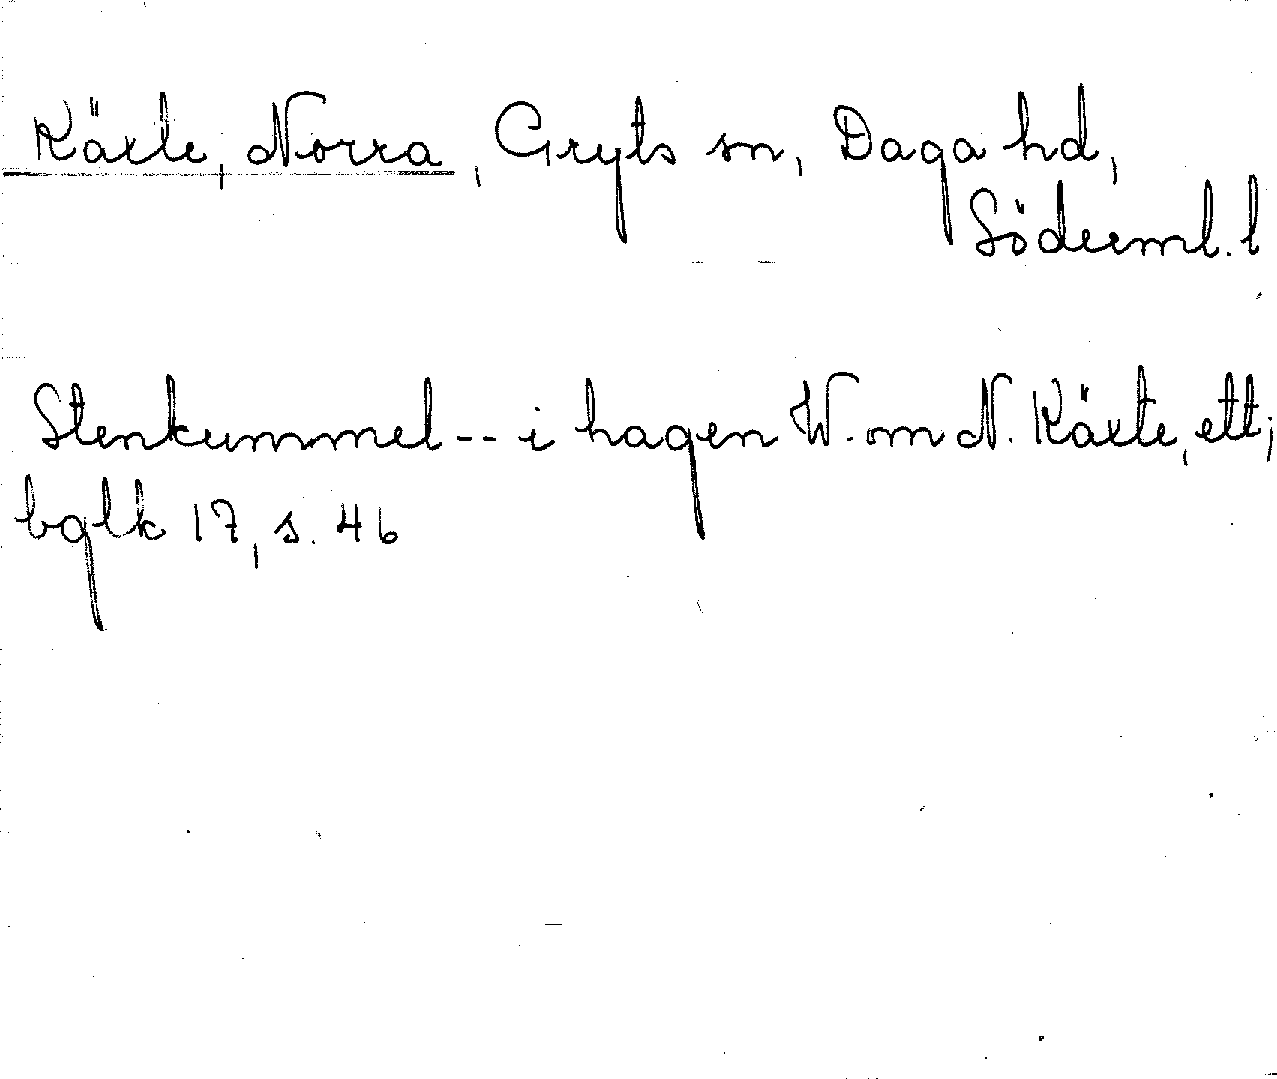 Käxle, Norra, Gryts sn, Daga hd,
Söderml. l
Stenkummel -- i hagen W. om N. Käxle, ett;
bglk 17, s. 46